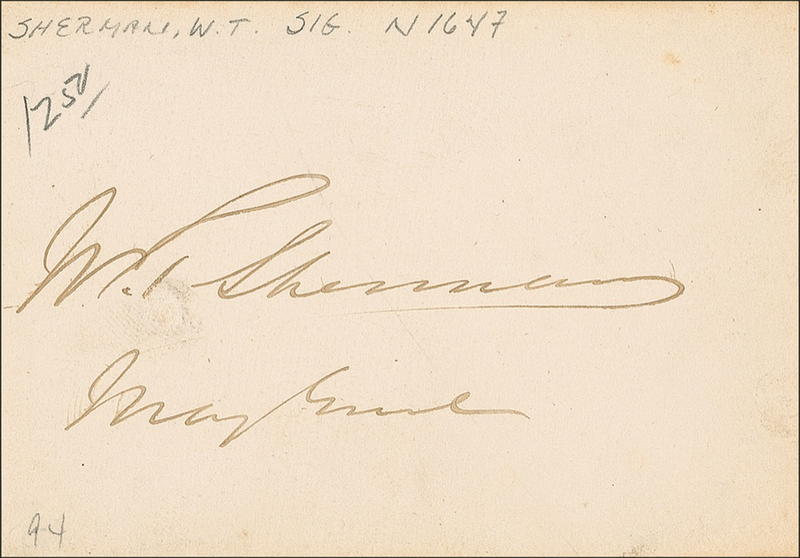 SHERMAN, W.T. SIG. N1647
1250/
W. T. Sherman
Maj Genl
94